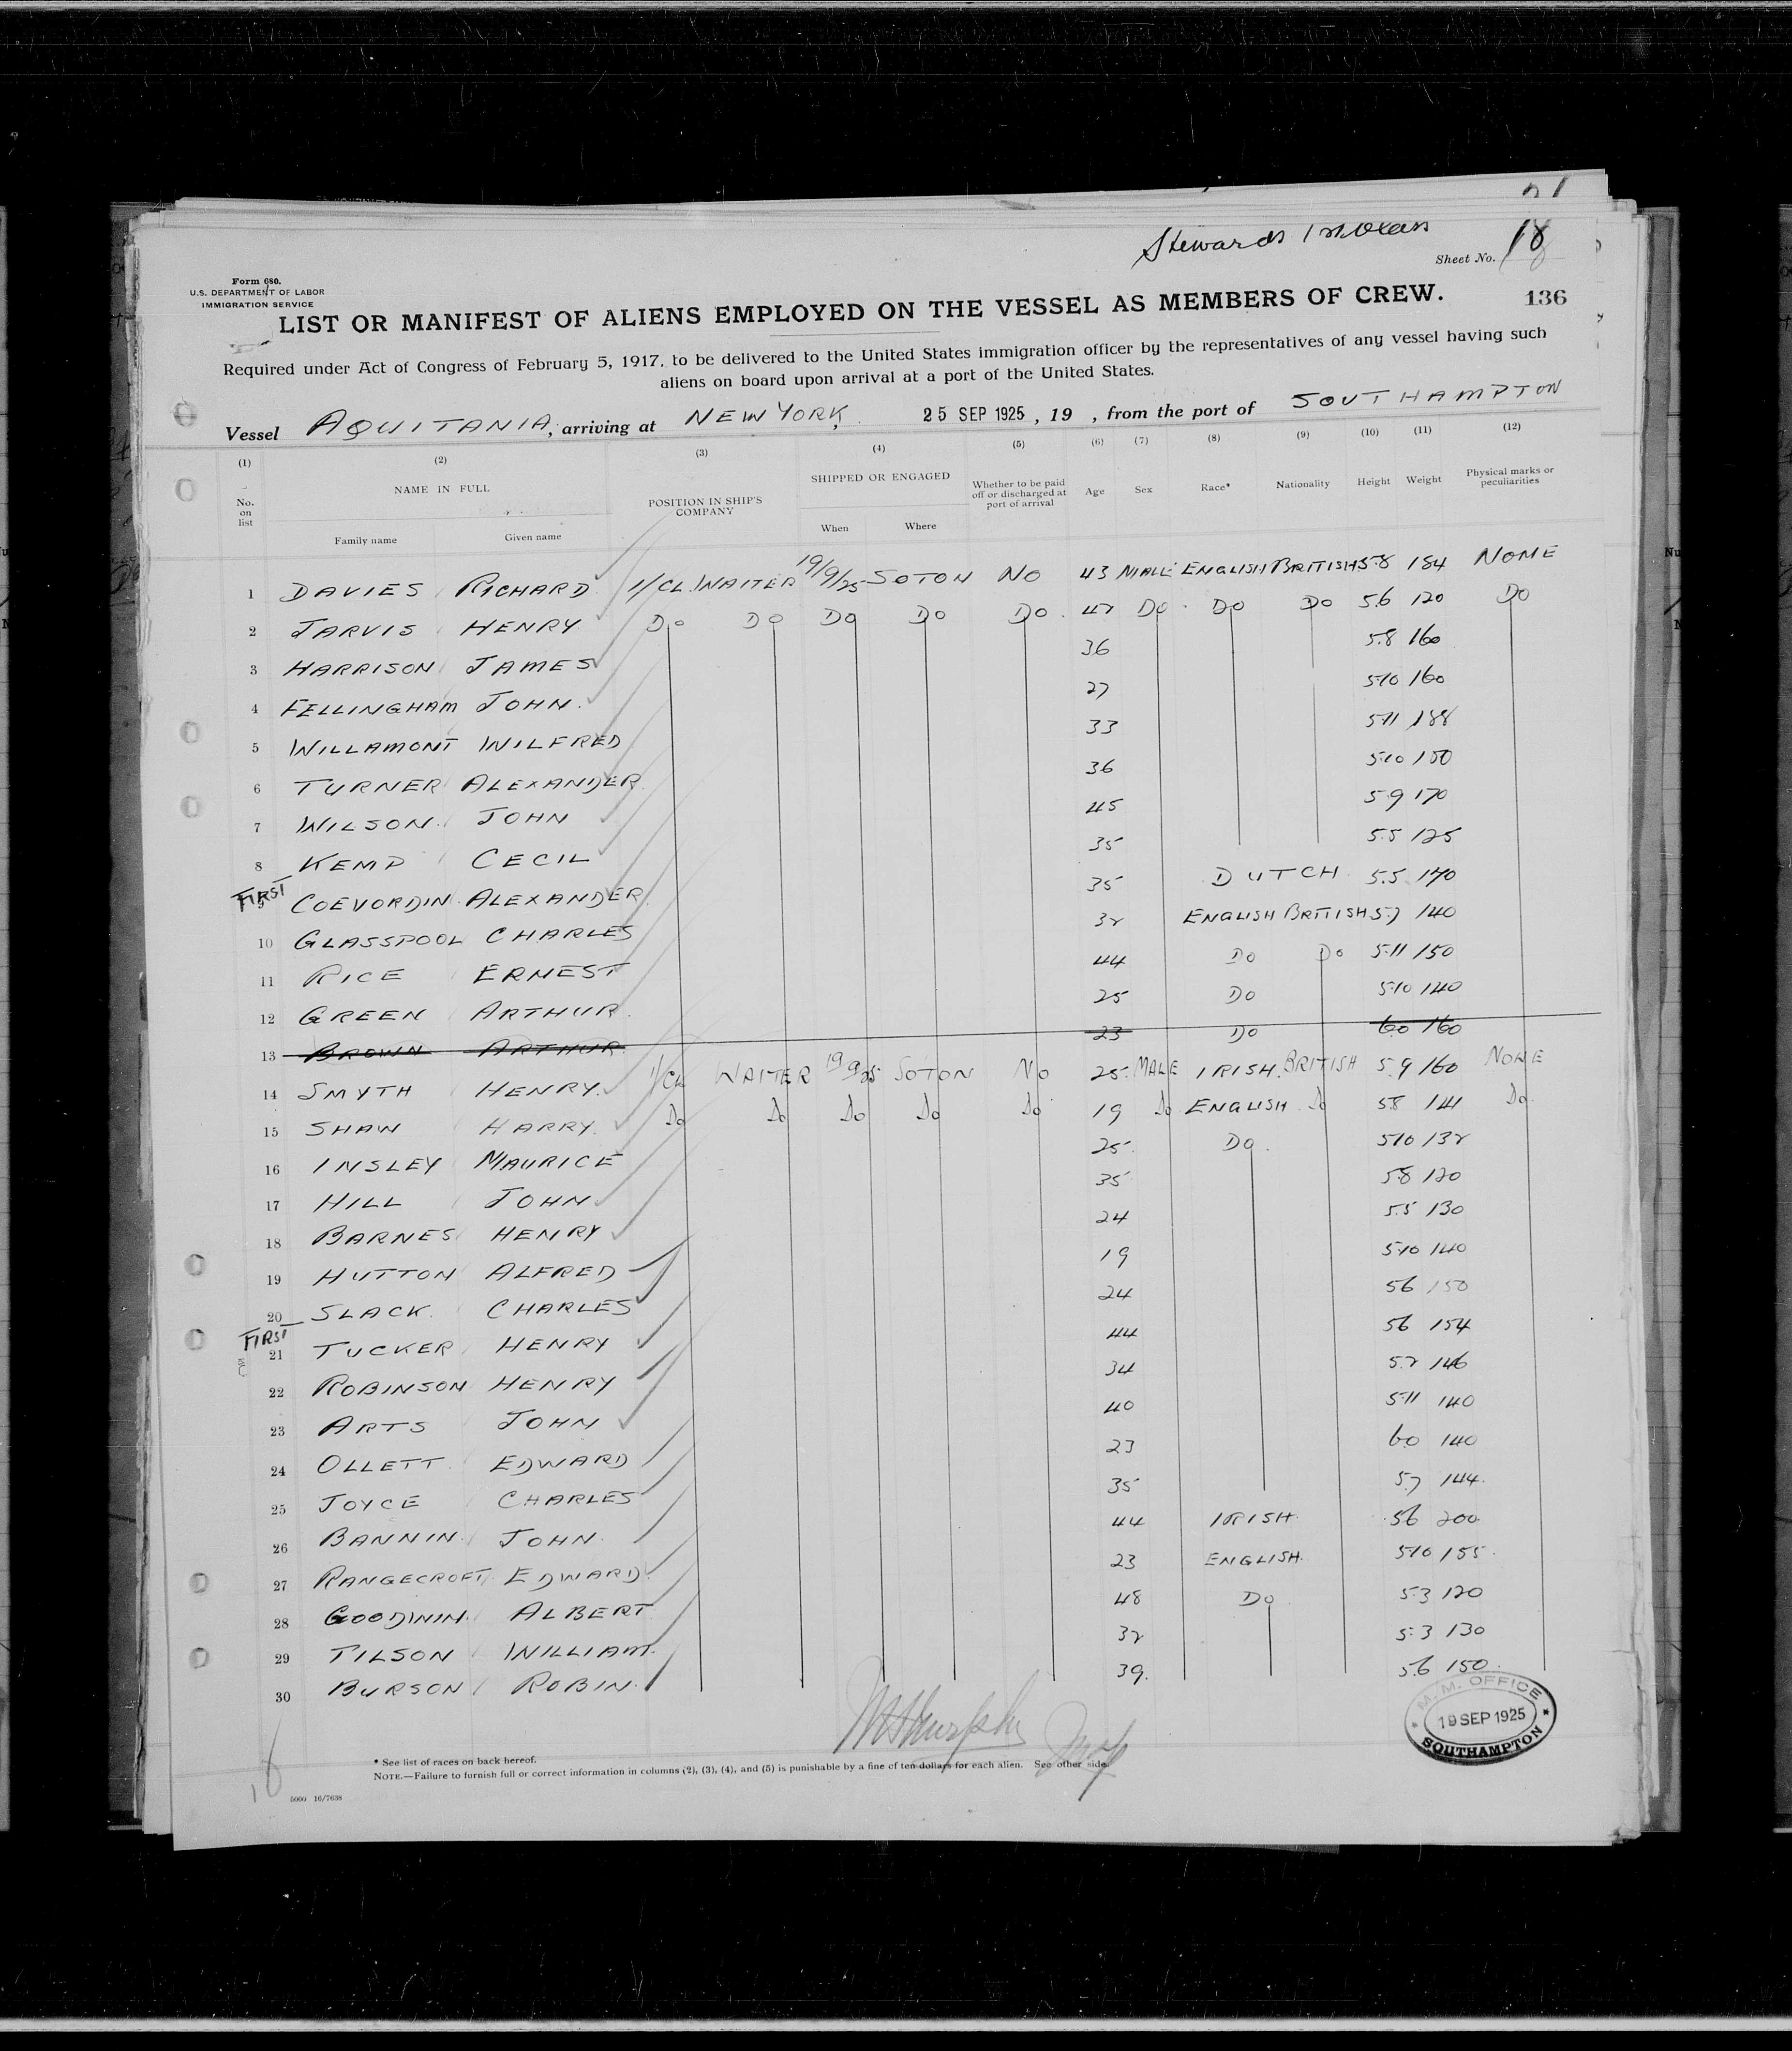 Stewards 1st Class
Sheet No. 18
Form 680.
U.S. DEPARTMENT OF LABOR
IMMIGRATION SERVICE
136
LIST OR MANIFEST OF ALIENS EMPLOYED ON THE VESSEL AS MEMBERS OF CREW.
Required under Act of Congress of February 5, 1917, to be delivered to the United States immigration officer by the representatives of any vessel having such
aliens on board upon arrival at a port of the United States.
Vessel AQUITANIA, arriving at NEW YORK, 25 SEP 1925, 19 , from the port of SOUTHAMPTON
(1) (2) (3) (4) (5) (6) (7) (8) (9) (10) (11) (12)
No. on list NAME IN FULL POSITION IN SHIP'S COMPANY SHIPPED OR ENGAGED Whether to be paid off or discharged at port of arrival Age Sex Race* Nationality Height Weight Physical marks or peculiarities
Family name Given name When Where
1 DAVIES RICHARD 1/CL. WAITER 19/9/25 SOTON NO 43 MALE ENGLISH BRITISH 5.8 184 NONE
2 JARVIS HENRY DO DO DO DO DO 42 DO DO DO 5.6 120 DO
3 HARRISON JAMES 36 5.8 160
4 FELLINGHAM JOHN 27 5.10 160
5 WILLAMONT WILFRED 33 5.11 188
6 TURNER ALEXANDER 36 5.10 150
7 WILSON JOHN 45 5.9 170
8 KEMP CECIL 35 5.5 125
FIRST
9 COEVORDIN ALEXANDER 35 DUTCH 5.5 140
10 GLASSPOOL CHARLES 32 ENGLISH BRITISH 5.7 140
11 RICE ERNEST 44 DO DO 5.11 150
12 GREEN ARTHUR 25 DO 5.10 140
13 BROWN ARTHUR 23 DO 6.0 160
14 SMYTH HENRY 1/CL WAITER 19 9 25 SOTON NO 25 MALE IRISH BRITISH 5.9 160 NONE
15 SHAW HARRY Do Do Do Do Do 19 Do ENGLISH Do 5.8 141 Do
16 INSLEY MAURICE 25 DO 5.10 132
17 HILL JOHN 35 5.8 120
18 BARNES HENRY 24 5.5 130
19 HUTTON ALFRED 19 5.10 140
20 SLACK CHARLES 24 5.6 150
FIRST
21 TUCKER HENRY 44 5.6 154
22 ROBINSON HENRY 34 5.7 146
23 ARTS JOHN 40 5.11 140
24 OLLETT EDWARD 23 6.0 140
25 JOYCE CHARLES 35 5.7 144
26 BANNIN JOHN 44 IRISH 5.6 200
27 RANGECROFT EDWARD 23 ENGLISH 5.10 155
28 GOODWIN ALBERT 48 DO 5.3 120
29 TILSON WILLIAM 32 5.3 130
30 BURSON ROBIN 39 5.6 150
M. M. OFFICE
19 SEP 1925
SOUTHAMPTON
* See list of races on back hereof.
NOTE.—Failure to furnish full or correct information in columns (2), (3), (4), and (5) is punishable by a fine of ten dollars for each alien. See other side.
5000 16/7638